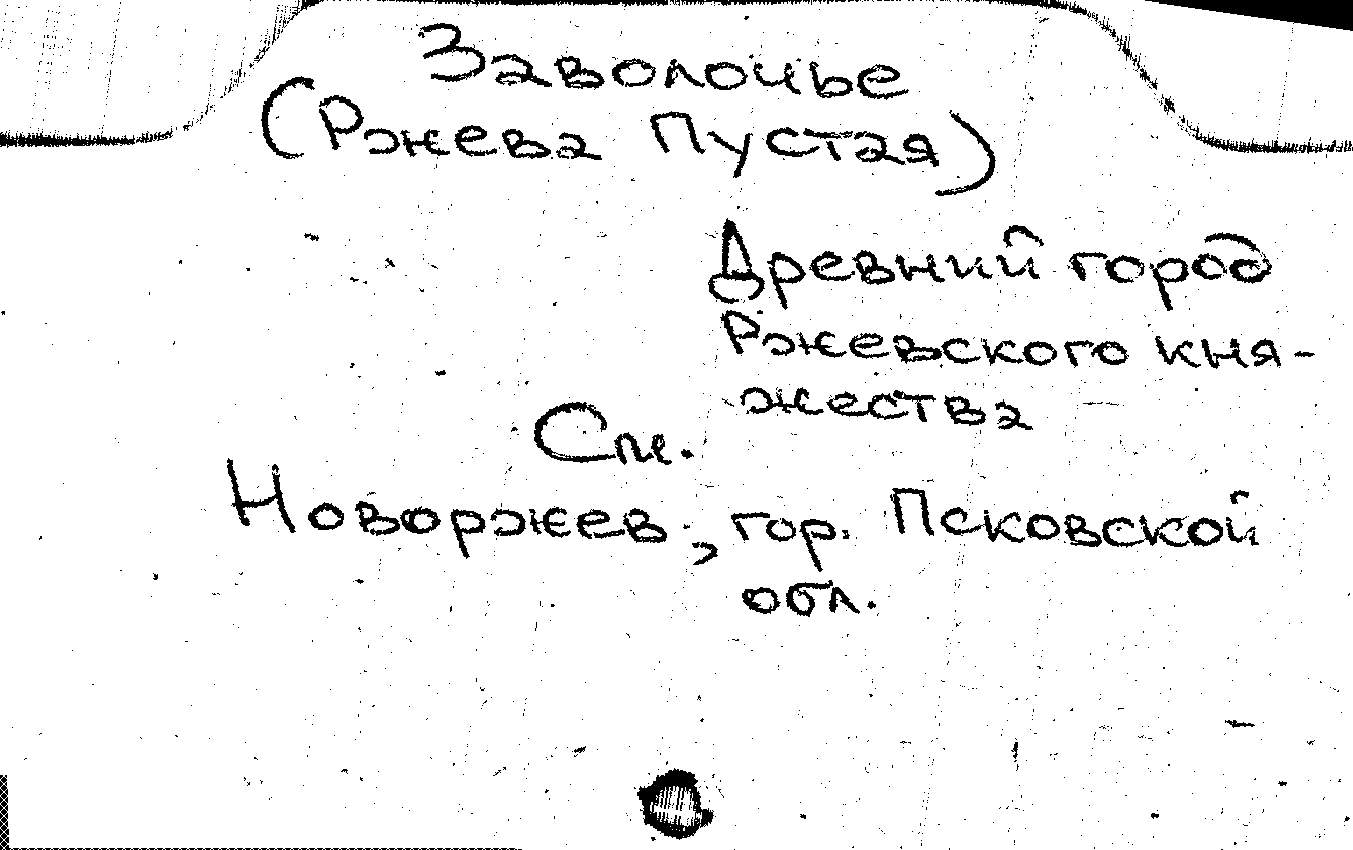 Заволочье
(Ржева Пустая)
Древний город
Ржевского кня-
жества
См.
Новоржев, гор. Псковской
обл.